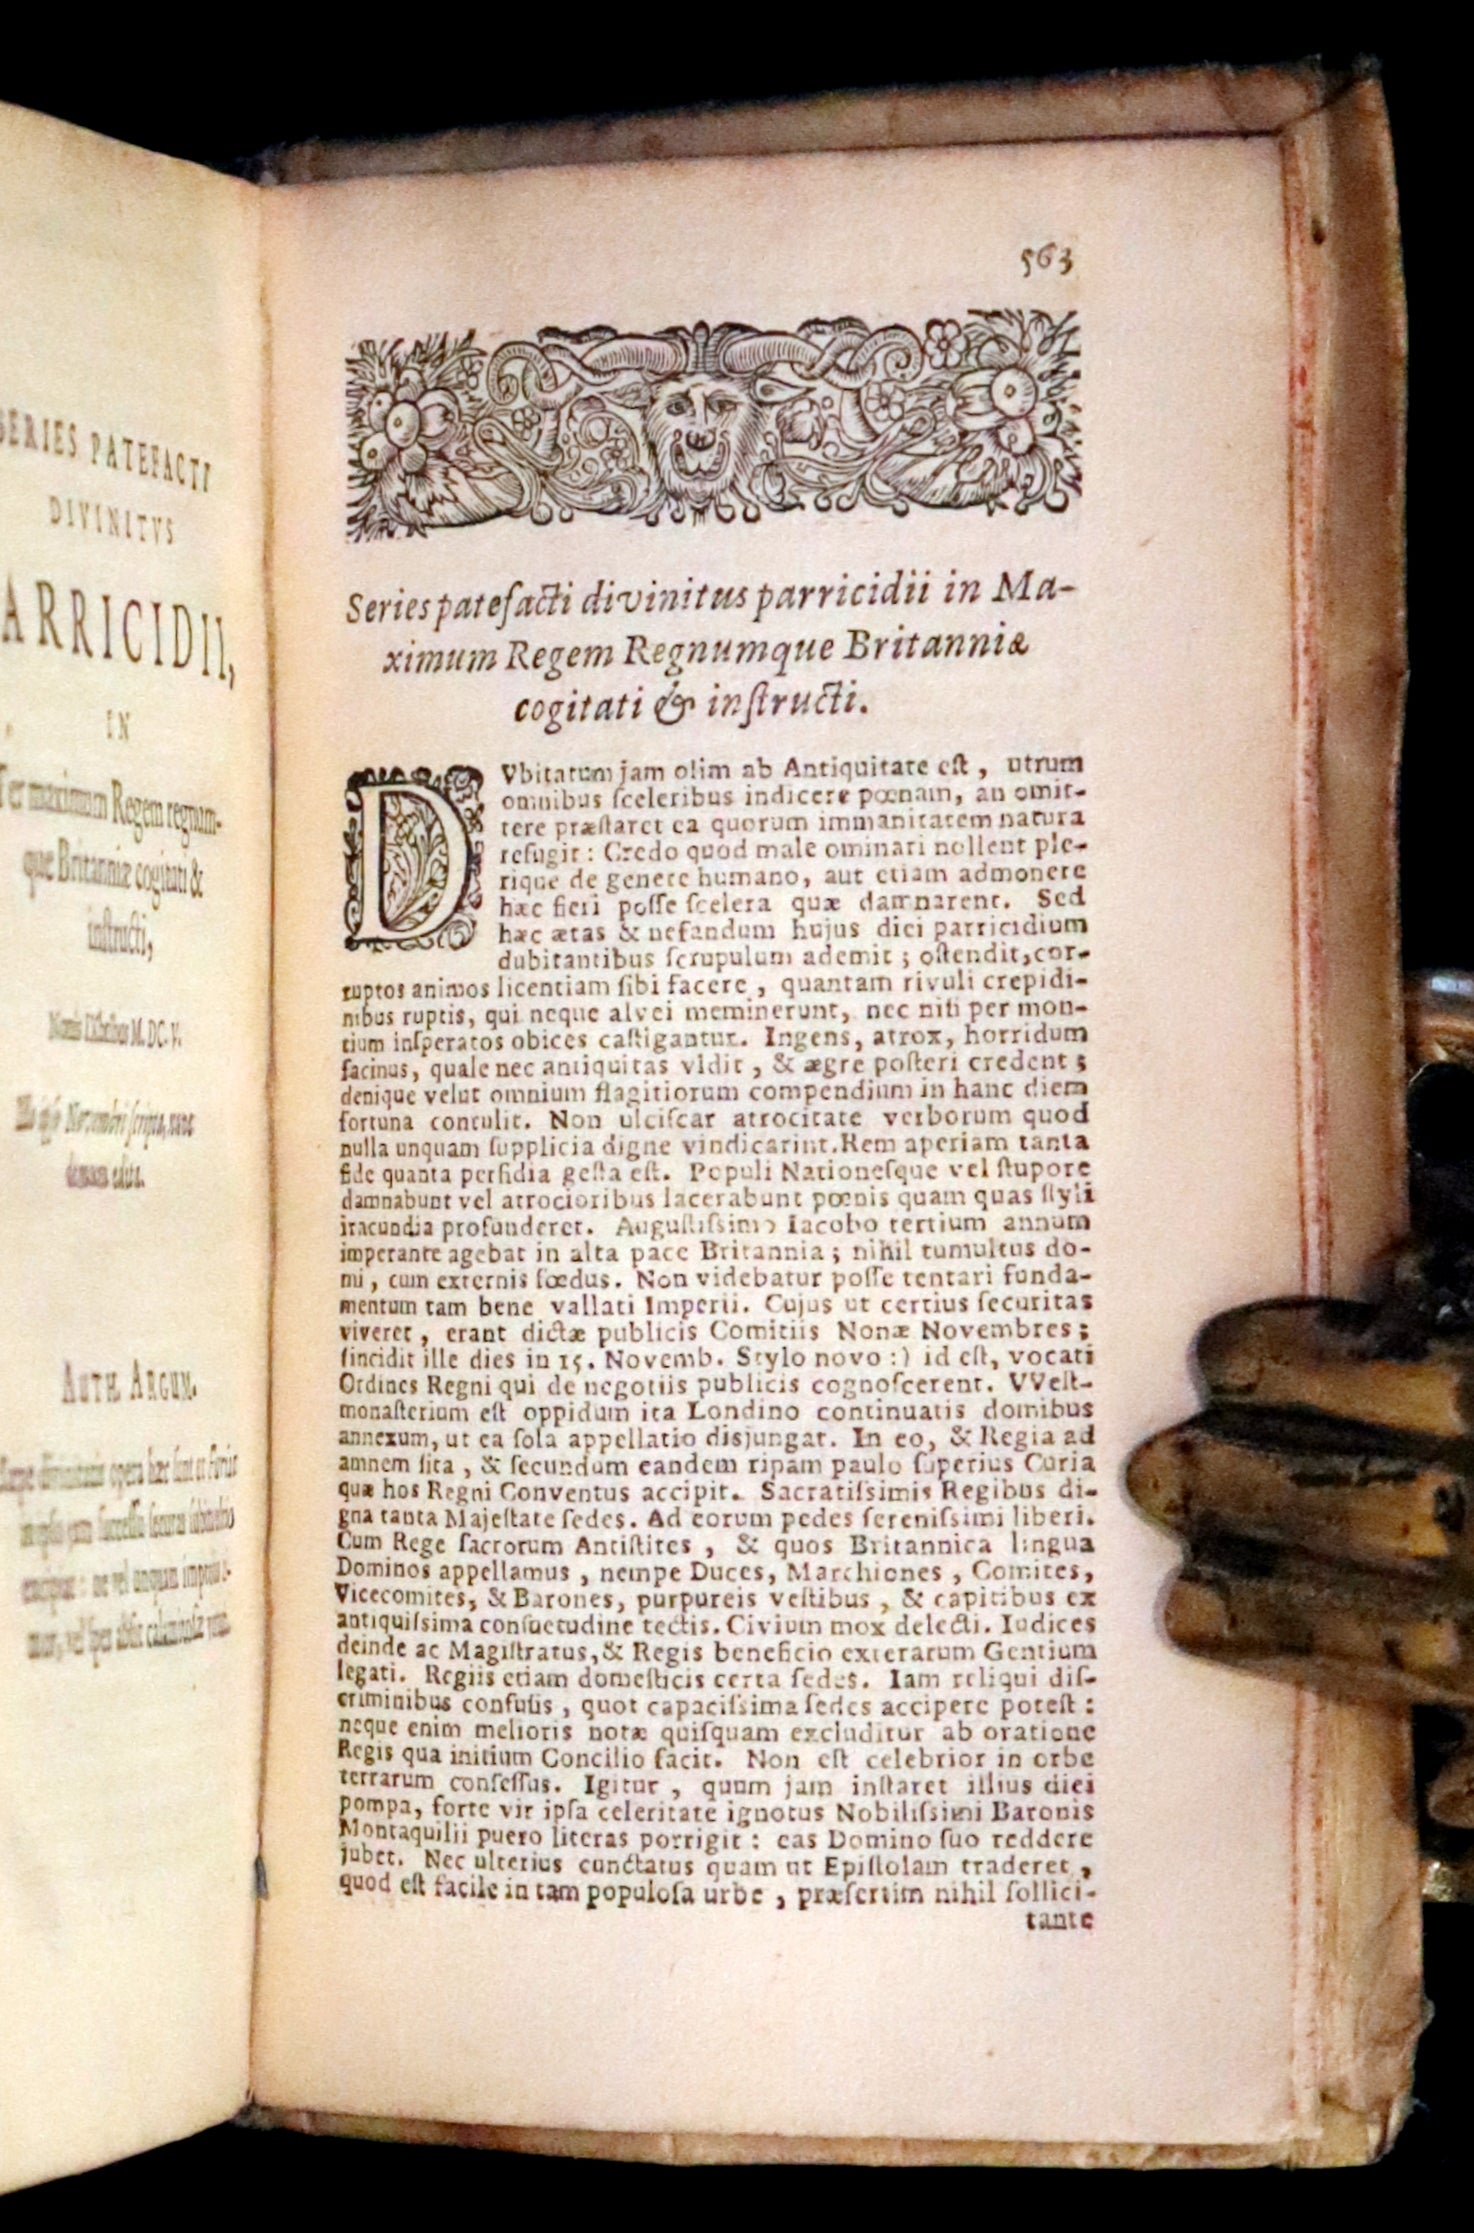 SERIES PATEFACTI
DIVINITVS
ARRICIDII,
IN
Ter maximum Regem regnum-
que Britanniæ cogitati &
instructi,
Nonis IXbribus M. DC. V.
Illo ipso Novembri scripta, nunc
demum edita.
AUTH. ARGUM.
563
Series patefacti divinitus parricidii in Ma-
ximum Regem Regnumque Britanniæ
cogitati & inſtructi.
DVbitatum jam olim ab Antiquitate eſt, utrum
omnibus ſceleribus indicere pœnam, an omit-
tere præſtaret ea quorum immanitatem natura
refugit: Credo quod male ominari nollent ple-
rique de genere humano, aut etiam admonere
hæc fieri poſſe ſcelera quæ damnarent. Sed
hæc ætas & nefandum hujus diei parricidium
dubitantibus ſcrupulum ademit; oſtendit, cor-
ruptos animos licentiam ſibi facere, quantam rivuli crepidi-
nibus ruptis, qui neque alvei meminerunt, nec niſi per mon-
tium inſperatos obices caſtigantur. Ingens, atrox, horridum
facinus, quale nec antiquitas vIdit, & ægre poſteri credent;
denique velut omnium flagitiorum compendium in hanc diem
fortuna contulit. Non ulciſcar atrocitate verborum quod
nulla unquam ſupplicia digne vindicarint. Rem aperiam tanta
fide quanta perfidia geſta eſt. Populi Nationeſque vel ſtupore
damnabunt vel atrocioribus lacerabunt pœnis quam quas ſtyli
iracundia profunderet. Auguſtiſſimo Iacobo tertium annum
imperante agebat in alta pace Britannia; nihil tumultus do-
mi, cum externis fœdus. Non videbatur poſſe tentari funda-
mentum tam bene vallati Imperii. Cujus ut certius ſecuritas
viveret, erant dictæ publicis Comitiis Nonæ Novembres;
ſincidit ille dies in 15. Novemb. Stylo novo:) id eſt, vocati
Ordines Regni qui de negotiis publicis cognoſcerent. VVeſt-
monaſterium eſt oppidum ita Londino continuatis domibus
annexum, ut ea ſola appellatio disjungat. In eo, & Regia ad
amnem ſita, & ſecundum eandem ripam paulo ſuperius Curia
quæ hos Regni Conventus accipit. Sacratiſſimis Regibus di-
gna tanta Majeſtate ſedes. Ad eorum pedes ſereniſſimi liberi.
Cum Rege ſacrorum Antiſtites, & quos Britannica lingua
Dominos appellamus, nempe Duces, Marchiones, Comites,
Vicecomites, & Barones, purpureis veſtibus, & capitibus ex
antiquiſſima conſuetudine tectis. Civium mox delecti. Iudices
deinde ac Magiſtratus, & Regis beneficio exterarum Gentium
legati. Regiis etiam domeſticis certa ſedes. Iam reliqui diſ-
criminibus confuſis, quot capaciſſima ſedes accipere poteſt:
neque enim melioris notæ quiſquam excluditur ab oratione
Regis qua initium Concilio facit. Non eſt celebrior in orbe
terrarum conſeſſus. Igitur, quum jam inſtaret illius diei
pompa, forte vir ipſa celeritate ignotus Nobiliſſimi Baronis
Montaquilii puero literas porrigit: eas Domino ſuo reddere
jubet. Nec ulterius cunctatus quam ut Epiſtolam traderet,
quod eſt facile in tam populoſa urbe, præſertim nihil ſollici-
tante